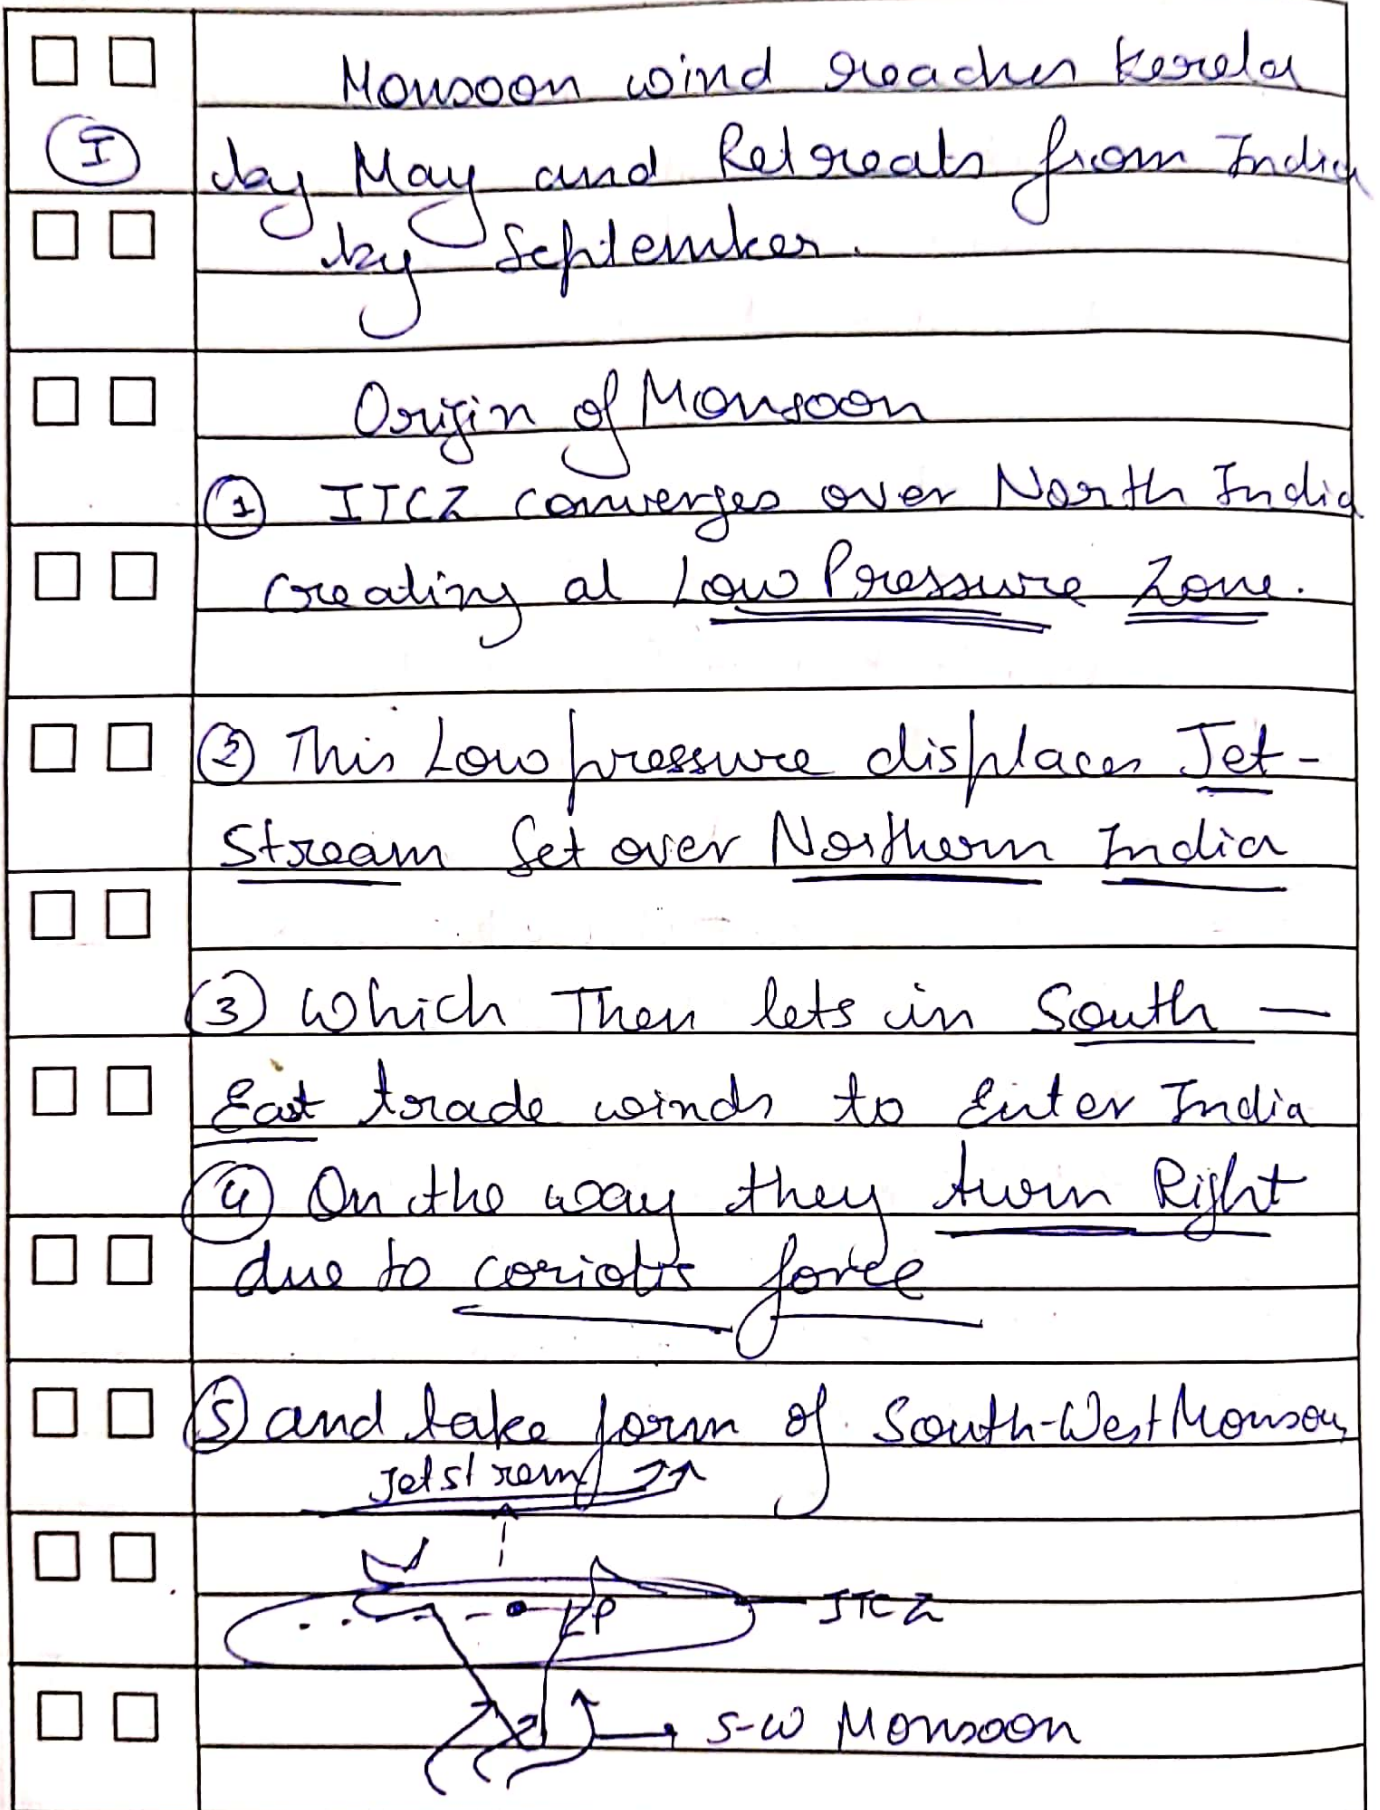 Monsoon wind reaches Kerela
I
by May and Retreats from India
by September.
Origin of Monsoon
1 ITCZ converges over North India
creating at Low Pressure Zone.
2 This Low pressure displaces Jet-
Stream Set over Northern India
3 Which Then lets in South -
East trade winds to Enter India
4 On the way they turn Right
due to coriolis force
5 and take form of South-West Monsoon
Jet stream
LP
ITCZ
S-W Monsoon